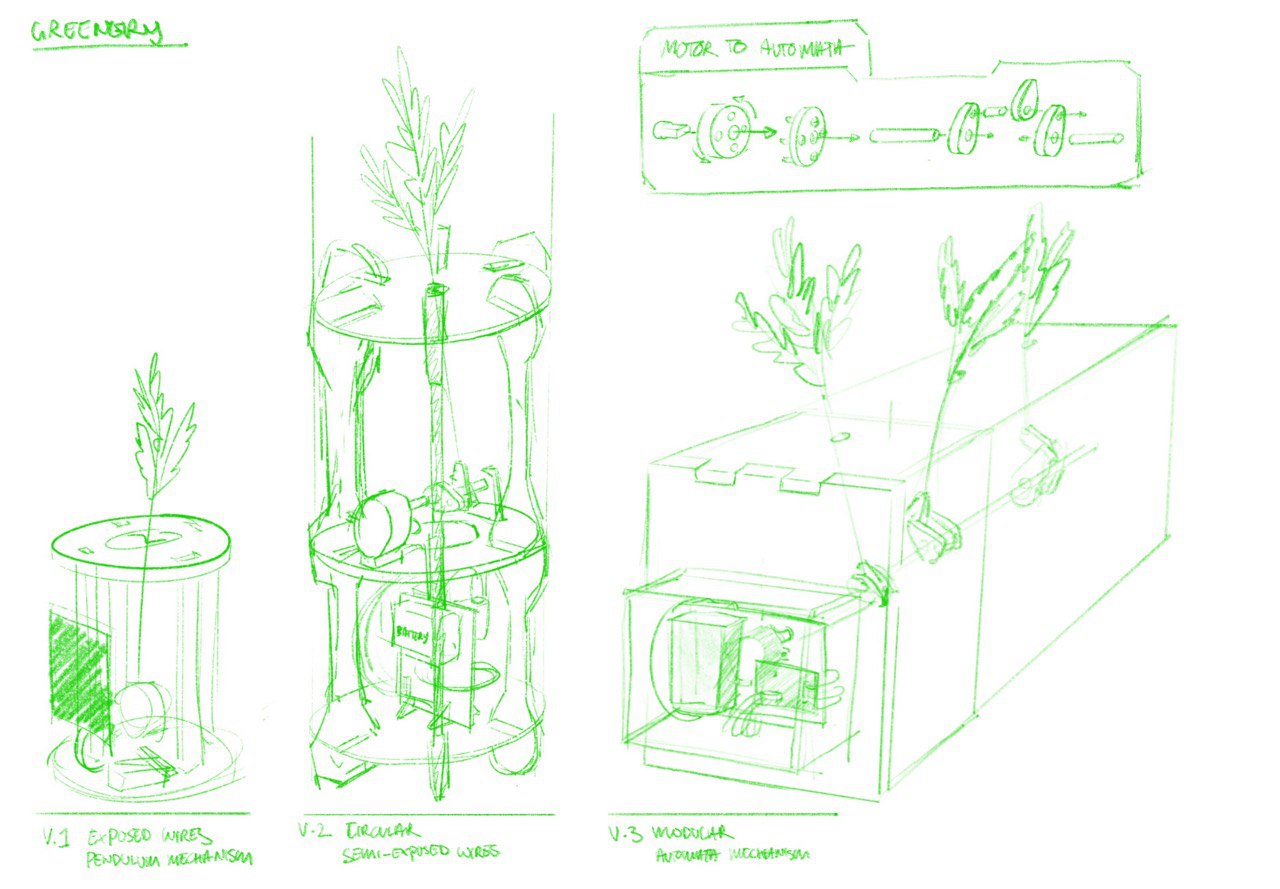 GREENERY
MOTOR TO AUTOMATA
BATTERY
V.1 EXPOSED WIRES
PENDULUM MECHANISM
V.2 CIRCULAR
SEMI-EXPOSED WIRES
V.3 MODULAR
AUTOMATA MECHANISM